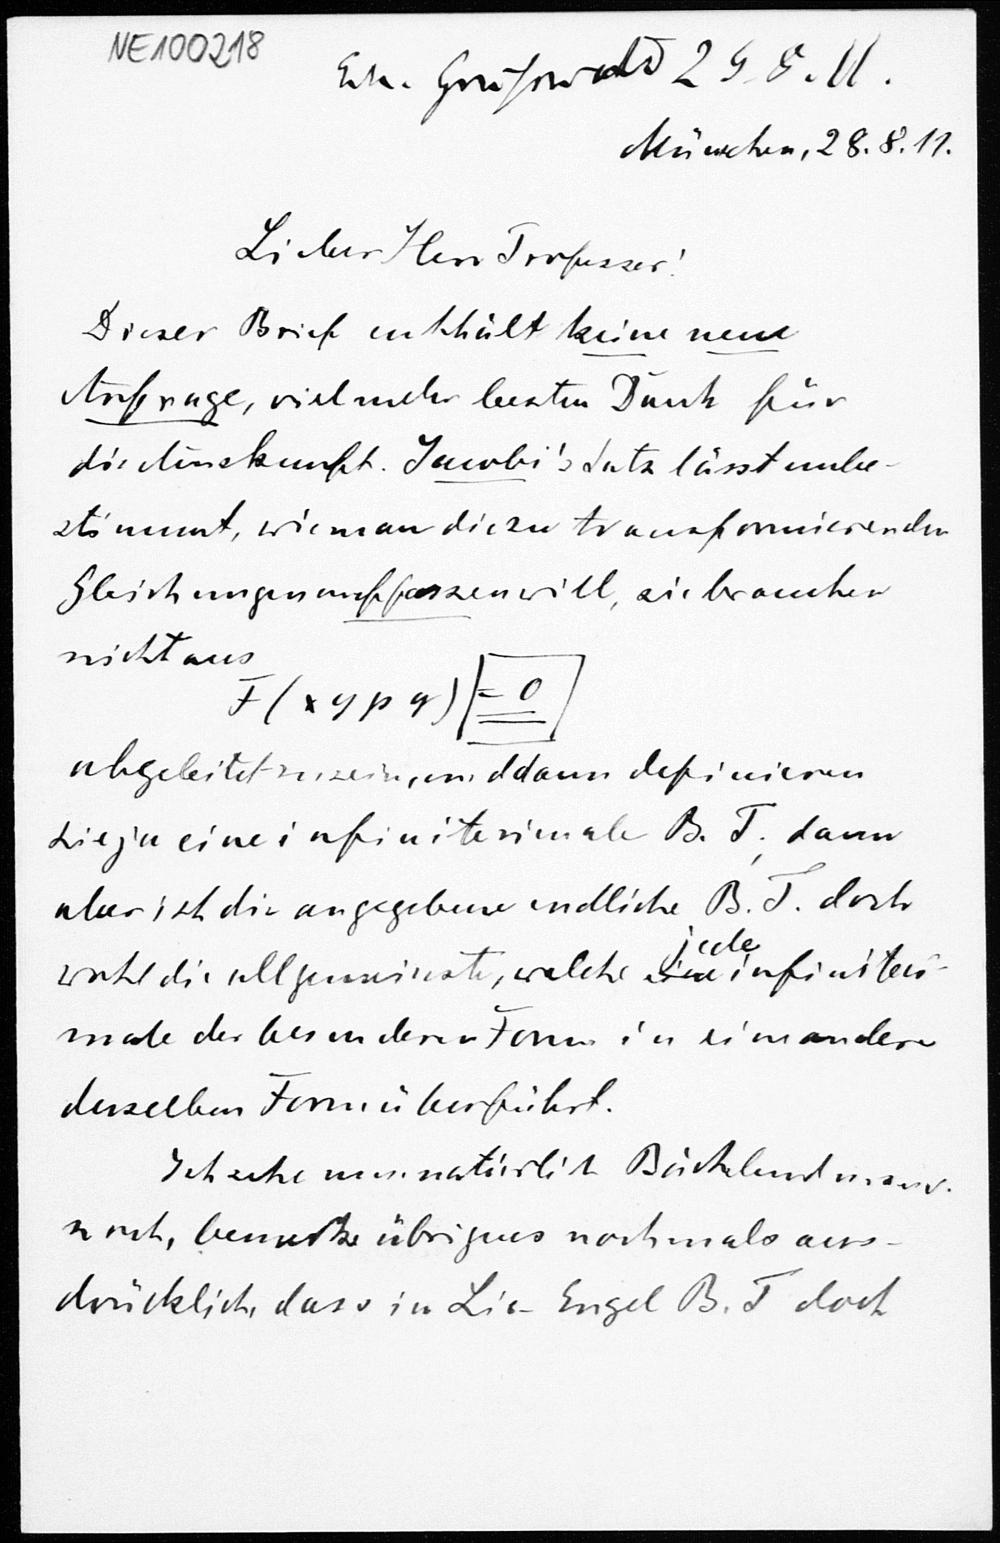 NE100218
Erh. Greifswald 29.8.11.
München, 28.8.11.
Lieber Herr Professor!
Dieser Brief enthält keine neue
Anfrage, vielmehr besten Dank für
die Auskunft. Jacobi's Satz lässt unbe-
stimmt, wie man die zu transformierenden
Gleichungen auffassen will, sie brauchen
nicht aus
F(x y p q) = 0
abgeleitet zu sein, und dann definieren
sie ja eine infinitesimale B. T., dann
aber ist die angegebene endliche B. T. doch
wohl die allgemeinste, welche jede infinitesi-
male der besonderen Form in eine andere
derselben Form überführt.
Ich sehe nun natürlich Bäcklund
noch, bemerke übrigens nochmals aus-
drücklich, dass in Lie-Engel B. T doch